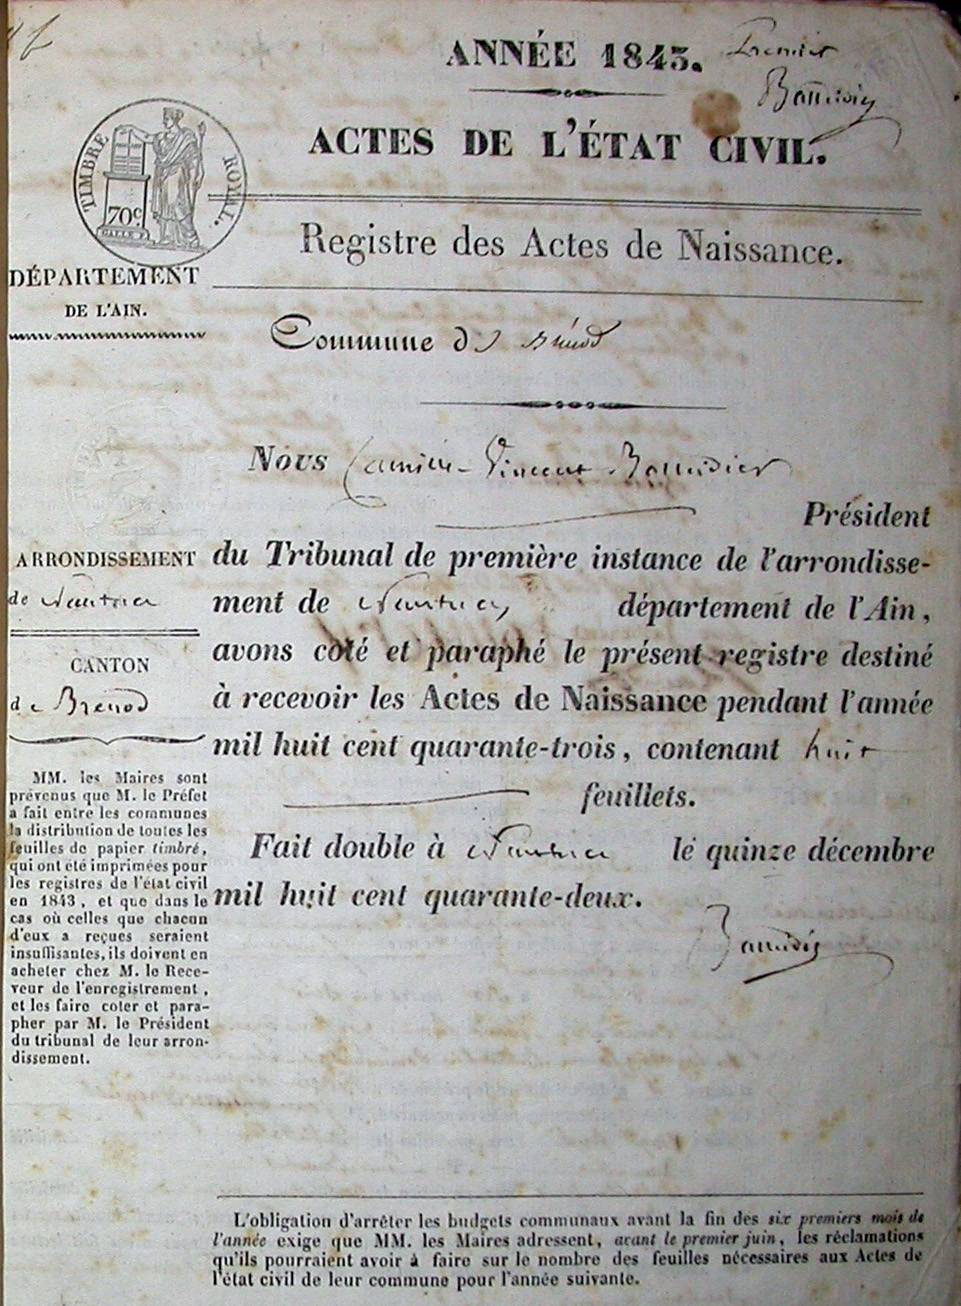 ANNÉE 1843. Premier
ACTES DE L'ÉTAT CIVIL.
TIMBRE ROYAL.
70c
Registre des Actes de Naissance.
DÉPARTEMENT
DE L'AIN.
Commune de
Nous Camille Vincent
Président
du Tribunal de première instance de l'arrondisse-
ment de Nantua département de l'Ain,
avons coté et paraphé le présent registre destiné
à recevoir les Actes de Naissance pendant l'année
mil huit cent quarante-trois, contenant huit
feuillets.
Fait double à Nantua le quinze décembre
mil huit cent quarante-deux.
ARRONDISSEMENT
de Nantua
CANTON
de Brenod
MM. les Maires sont
prévenus que M. le Préfet
a fait entre les communes
la distribution de toutes les
feuilles de papier timbré,
qui ont été imprimées pour
les registres de l'état civil
en 1843, et que dans le
cas où celles que chacun
d'eux a reçues seraient
insuffisantes, ils doivent en
acheter chez M. le Rece-
veur de l'enregistrement,
et les faire coter et para-
pher par M. le Président
du tribunal de leur arron-
dissement.
L'obligation d'arrêter les budgets communaux avant la fin des six premiers mois de
l'année exige que MM. les Maires adressent, avant le premier juin, les réclamations
qu'ils pourraient avoir à faire sur le nombre des feuilles nécessaires aux Actes de
l'état civil de leur commune pour l'année suivante.